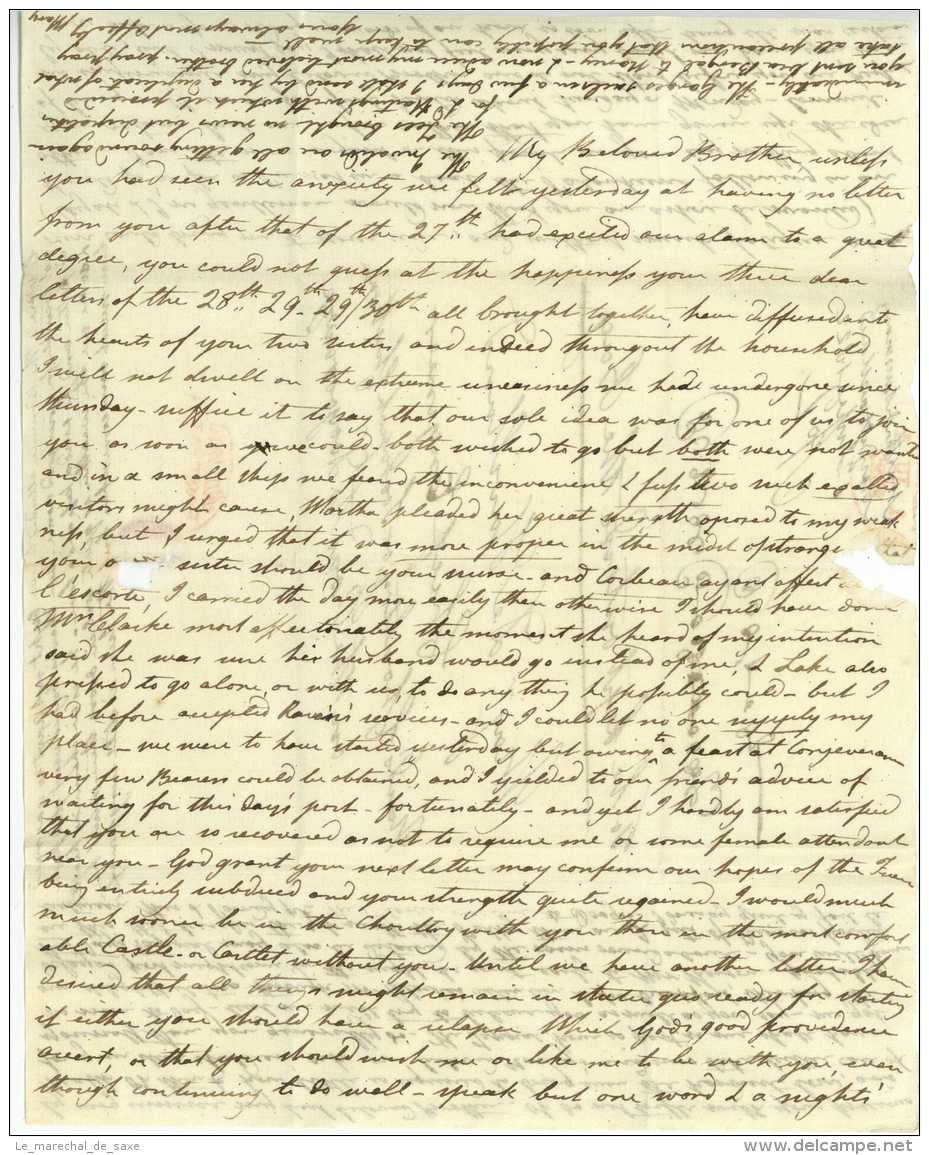 My Beloved Brother unless
you had seen the anxiety we felt yesterday at having no letter
from you after that of the 27th had excited our alarm to a great
degree, you could not guess at the happiness your three dear
letters of the 28th 29th 29th/30th all brought together, have diffused into
the hearts of your two sisters and indeed throughout the household
I will not dwell on the extreme uneasiness we had undergone since
thursday - suffice it to say that our sole idea was for one of us to join
you as soon as we could - both wished to go but both were not wanted
and in a small ship we feared the inconvenience & fuss two such
visitors might cause, Martha pleaded her great strength oposed to my weak
ness, but I urged that it was more proper in the midst of strange
your sister should be your nurse - and Corbeau ayant offert
l'escorte, I carried the day more easily than otherwise I should have done
Mrs Clarke most affectionately the moment she heard of my intention
said she was sure her husband would go instead of me, & Lake also
pressed to go alone, or with us, to do any thing he possibly could - but I
had before accepted Raven's services - and I could let no one supply my
place - we were to have started yesterday but owing to a feast at Conjeveram
very few Bearers could be obtained, and I yielded to our friend's advice of
waiting for this day's post - fortunately - and yet I hardly am satisfied
that you are so recovered as not to require me or some female attendant
near you - God grant your next letter may confirm our hopes of the Fever
being entirely subdued and your strength quite regained - I would much
much sooner be in the Choultry with you than in the most comfort
able Castle - or Castlet without you - Until we have another letter I have
desired that all things might remain in statu quo ready for starting
if either you should have a relapse Which God's good providence
avert, or that you should wish me or like me to be with you, even
though continuing to do well - speak but one word & a night's
The Invalids are all getting round again
The Tees brought no news but duplicates
for Ld Hastings with which it proceeded
immediately - The Ganges sails in a few days I shall send by her a duplicate of what
you sent via Bengal to Money - & now adieu my most beloved brother, pray pray
take all precautions that you possibly can to keep well -
Yours always most affectly
Mary
Le_marechal_de_saxe
www.delcampe.net